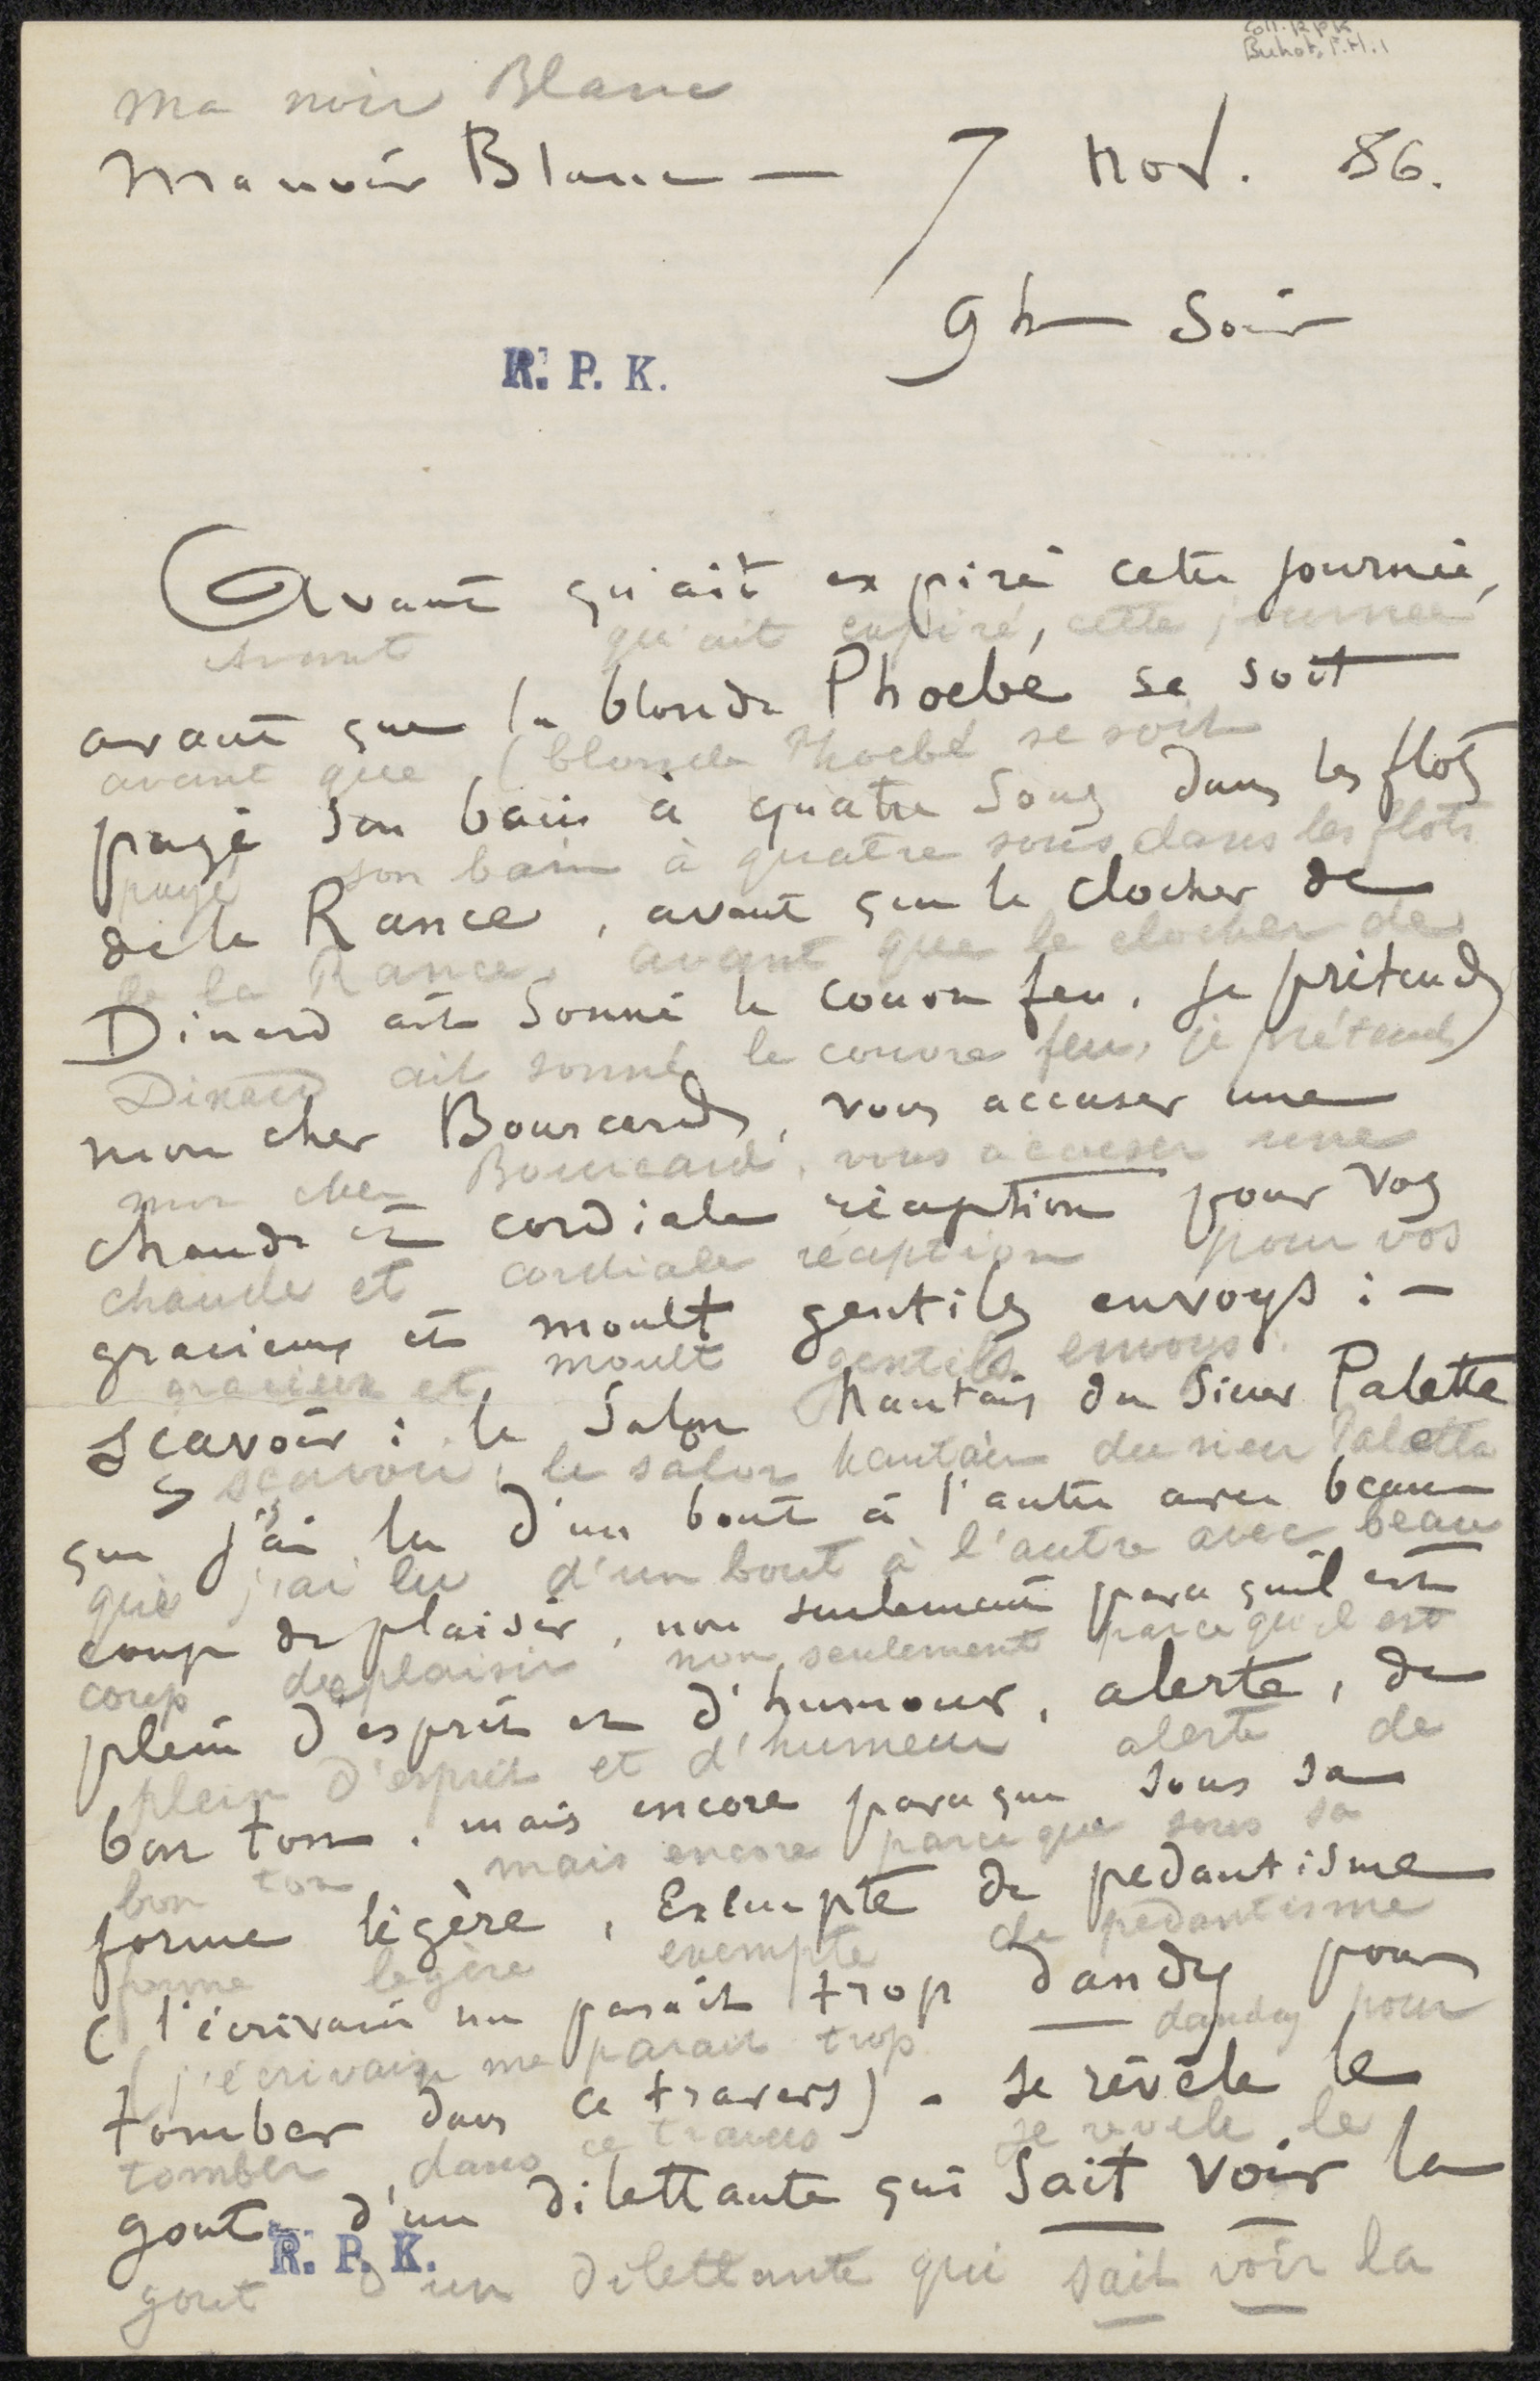 Coll. RPK
Buhot, F.H. 1
Ma noir Blanc
Manoir Blanc — 7 Nov. 86.
9h Soir
R. P. K.
Avant qu'ait expiré cette journée,
Avant qu'ait expiré, cette journee
avant que la blonde Phoebé se soit
avant que ( blonde Phoebé se soit
payé son bain à quatre sous dans les flots
payé son bain à quatre sous dans les flots
de la Rance, avant que le clocher de
de la Rance, avant que le clocher de
Dinard ait sonné le couvre feu, je prétends
Dinard ait sonné le couvre feu, je prétends
mon cher Bourcard, vous accuser une
mon cher Bourcard, vous accuser une
chaude et cordiale réception pour vos
chaude et cordiale réception pour vos
gracieux et moult gentils envoys : —
gracieux et moult gentils envoys :
sçavoir : le Salon nantais du Sieur Palette
sçavoir, le salon hantain du sieur Palette
que j'ai lu d'un bout à l'autre avec beau
que j'ai lu d'un bout à l'autre avec beau
coup de plaisir, non seulement parce qu'il est
coup de plaisir non seulement parce qu'il est
plein d'esprit et d'humour, alerte, de
plein d'esprit et d'humeur alerte de
bon ton, mais encore parce que sous sa
bon ton mais encore parce que sous sa
forme légère, Exempte de pedantisme
forme legère exempte de pedantisme
( l'écrivain me parait trop dandy pour
( j'écrivain me parait trop dandy pour
tomber dans ce travers) - se révèle le
tomber dans ce travers se revele le
gout d'un dilettante qui Sait Voir la
R. P. K.
gout d'un dilettante qui sait voir la